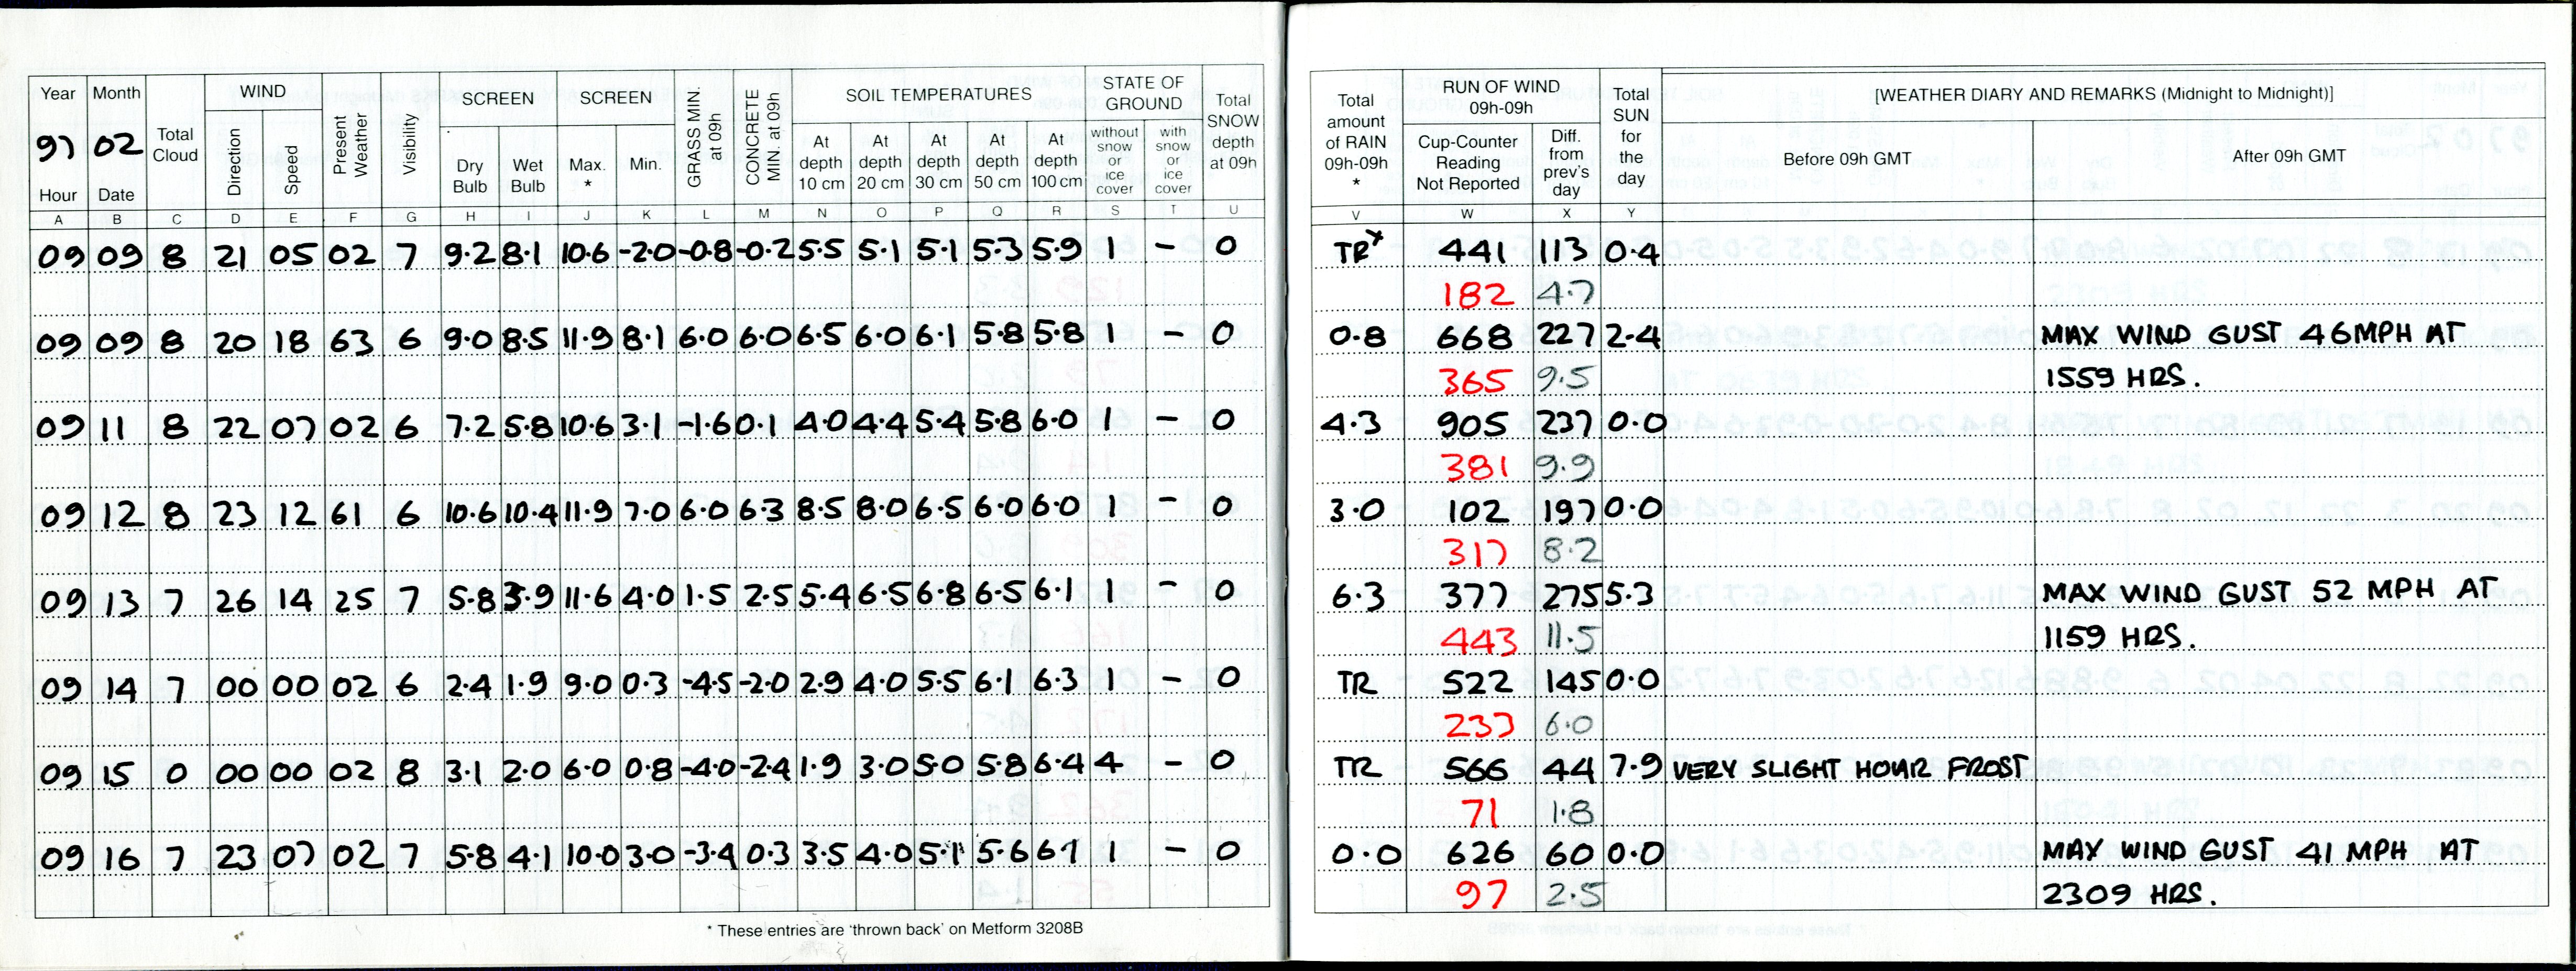 Year Month Total Cloud WIND Present Weather Visibility SCREEN SCREEN GRASS MIN. at 09h CONCRETE MIN. at 09h SOIL TEMPERATURES STATE OF GROUND Total SNOW depth at 09h
97 02 Direction Speed Dry Bulb Wet Bulb Max. * Min. At depth 10 cm At depth 20 cm At depth 30 cm At depth 50 cm At depth 100 cm without snow or ice cover with snow or ice cover
Hour Date
A B C D E F G H I J K L M N O P Q R S T U
09 09 8 21 05 02 7 9.2 8.1 10.6 -2.0 -0.8 -0.2 5.5 5.1 5.1 5.3 5.9 1 - 0
09 09 8 20 18 63 6 9.0 8.5 11.9 8.1 6.0 6.0 6.5 6.0 6.1 5.8 5.8 1 - 0
09 11 8 22 07 02 6 7.2 5.8 10.6 3.1 -1.6 0.1 4.0 4.4 5.4 5.8 6.0 1 - 0
09 12 8 23 12 61 6 10.6 10.4 11.9 7.0 6.0 6.3 8.5 8.0 6.5 6.0 6.0 1 - 0
09 13 7 26 14 25 7 5.8 3.9 11.6 4.0 1.5 2.5 5.4 6.5 6.8 6.5 6.1 1 - 0
09 14 7 00 00 02 6 2.4 1.9 9.0 0.3 -4.5 -2.0 2.9 4.0 5.5 6.1 6.3 1 - 0
09 15 0 00 00 02 8 3.1 2.0 6.0 0.8 -4.0 -2.4 1.9 3.0 5.0 5.8 6.4 4 - 0
09 16 7 23 07 02 7 5.8 4.1 10.0 3.0 -3.4 0.3 3.5 4.0 5.1 5.6 6.1 1 - 0
* These entries are 'thrown back' on Metform 3208B
Total amount of RAIN 09h-09h * RUN OF WIND 09h-09h Total SUN for the day [WEATHER DIARY AND REMARKS (Midnight to Midnight)]
Cup-Counter Reading Not Reported Diff. from prev's day Before 09h GMT After 09h GMT
V W X Y
TR* 441 113 0.4
182 4.7
0.8 668 227 2.4 MAX WIND GUST 46MPH AT
365 9.5 1559 HRS.
4.3 905 237 0.0
381 9.9
3.0 102 197 0.0
317 8.2
6.3 377 275 5.3 MAX WIND GUST 52 MPH AT
443 11.5 1159 HRS.
TR 522 145 0.0
233 6.0
TR 566 44 7.9 VERY SLIGHT HOAR FROST
71 1.8
0.0 626 60 0.0 MAX WIND GUST 41 MPH AT
97 2.5 2309 HRS.